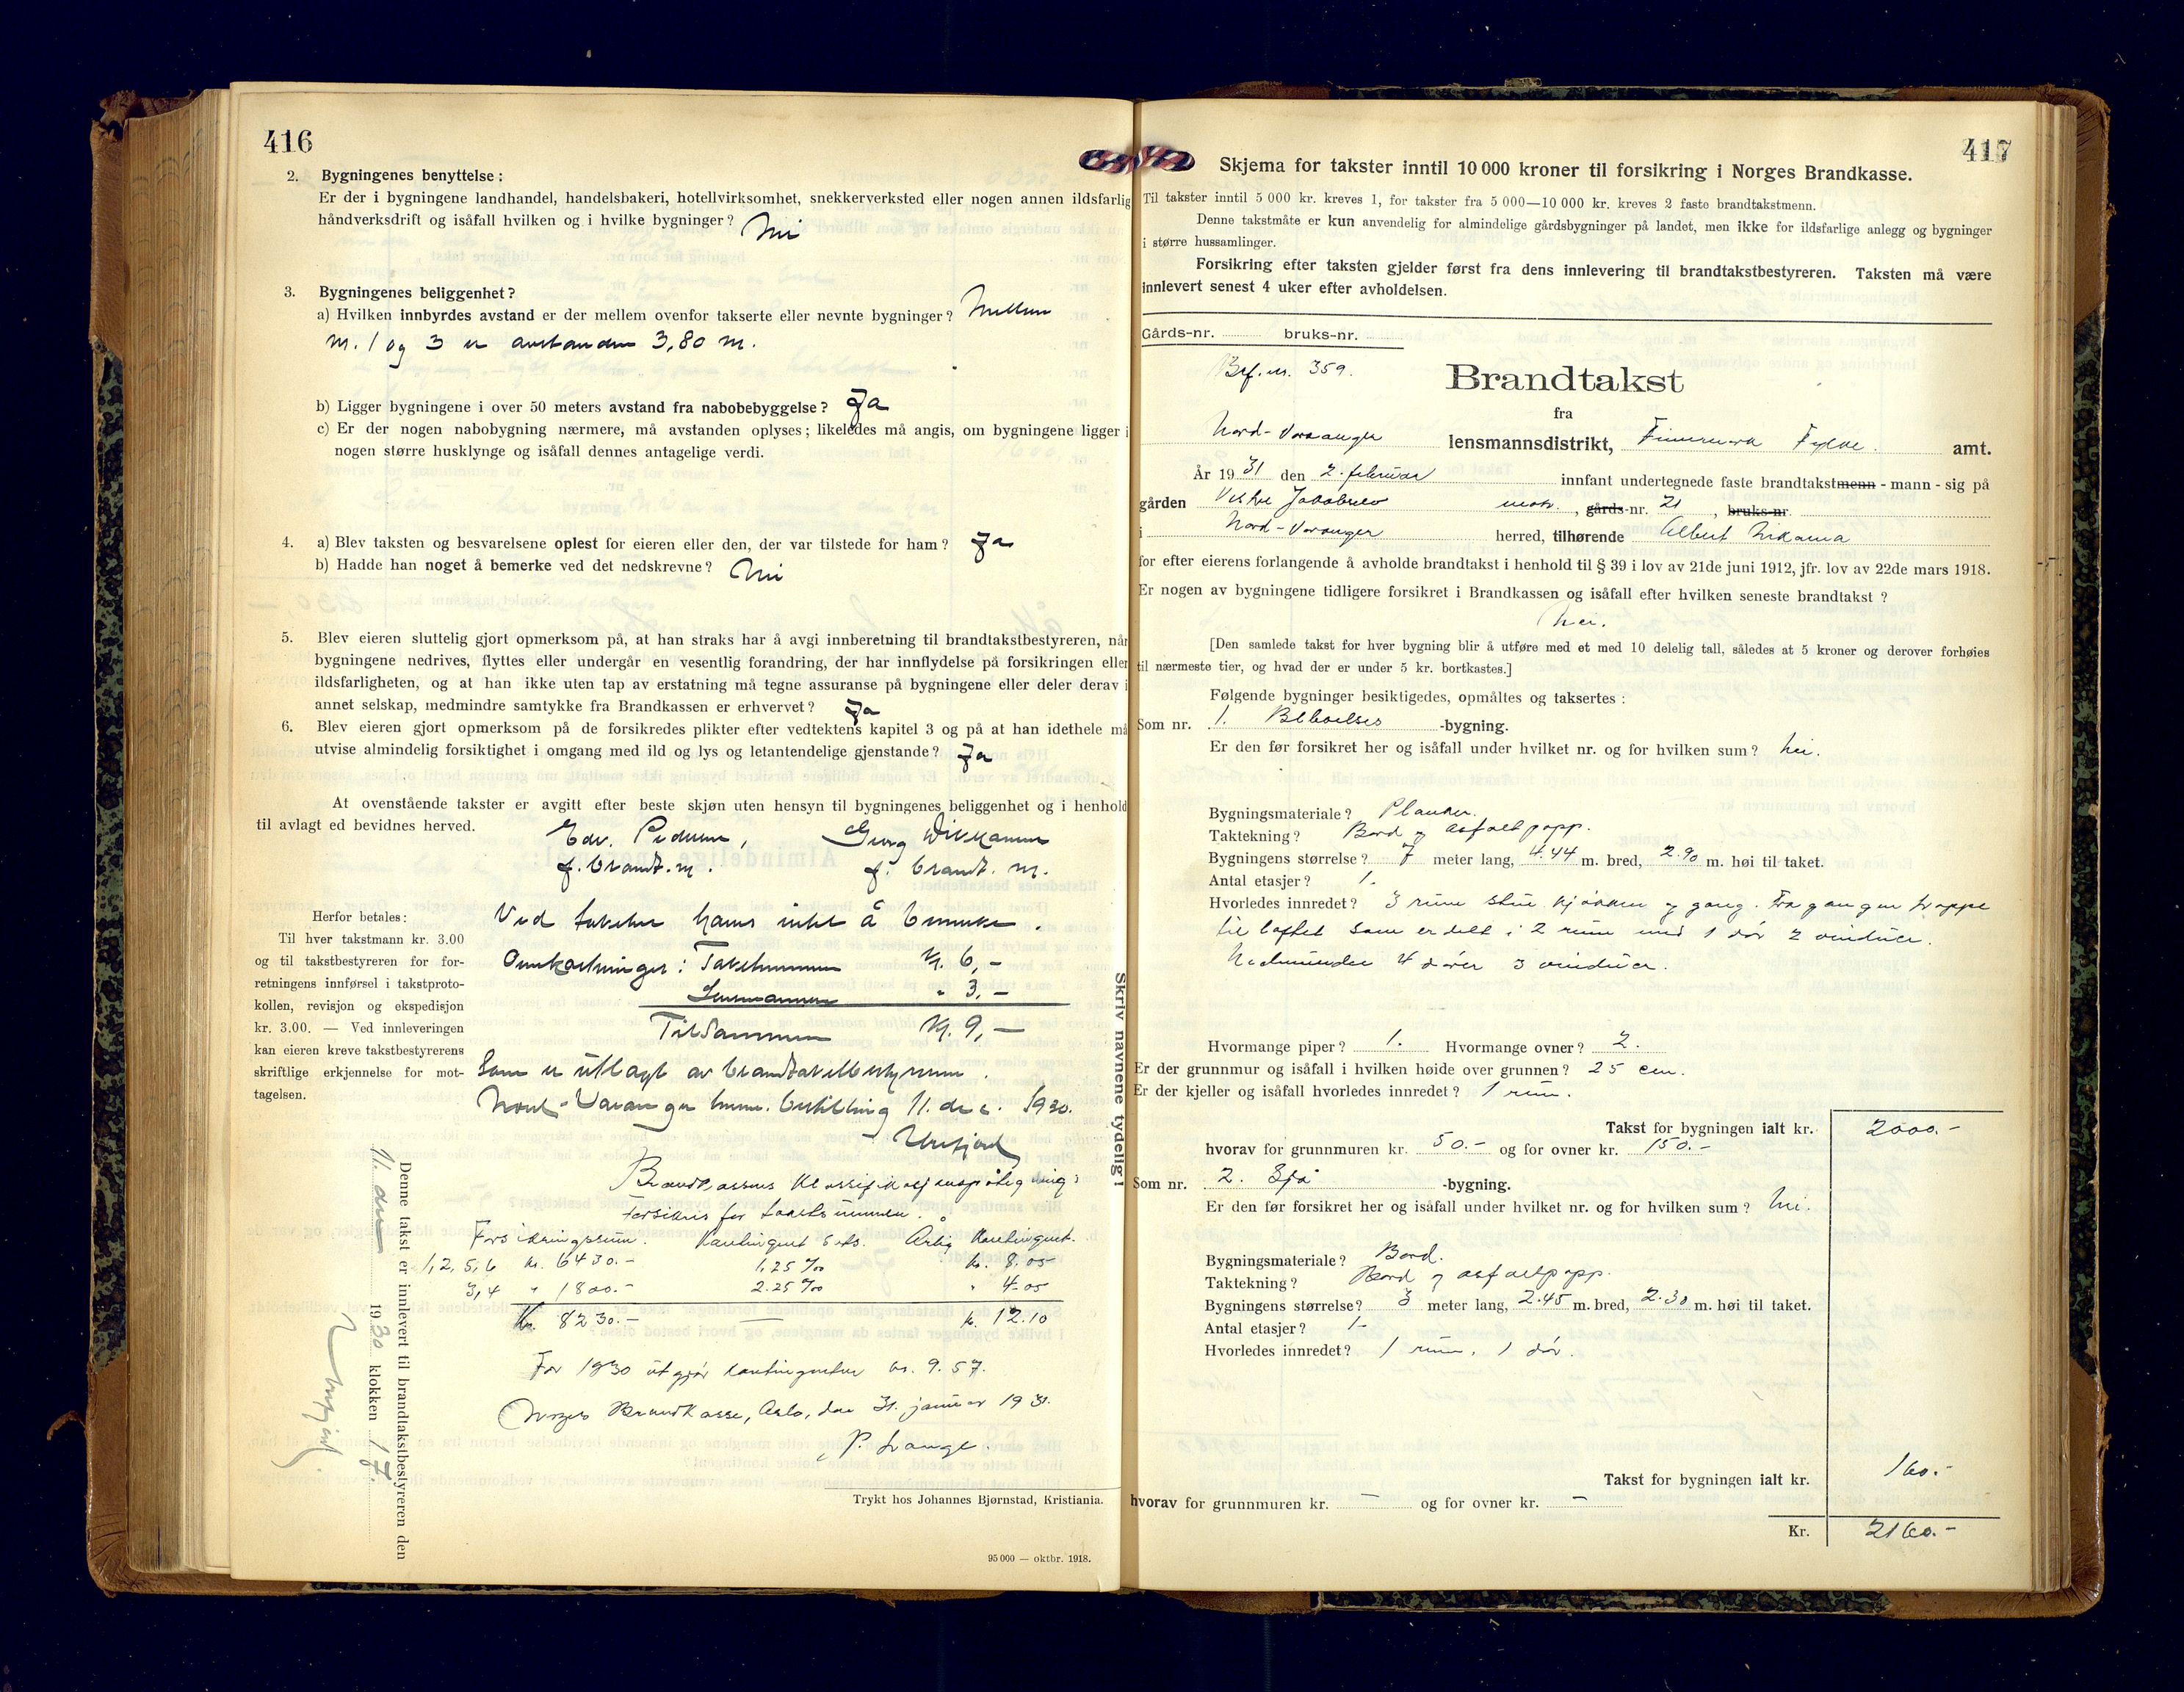 416
2. Bygningenes benyttelse:
Er der i bygningene landhandel, handelsbakeri, hotellvirksomhet, snekkerverksted eller nogen annen ildsfarlig
håndverksdrift og isåfall hvilken og i hvilke bygninger? Nei
3. Bygningenes beliggenhet?
a) Hvilken innbyrdes avstand er der mellem ovenfor takserte eller nevnte bygninger? Mellem
nr. 1 og 3 er avstanden 3,80 m.
b) Ligger bygningene i over 50 meters avstand fra nabobebyggelse? Ja
c) Er der nogen nabobygning nærmere, må avstanden oplyses; likeledes må angis, om bygningene ligger i
nogen større husklynge og isåfall dennes antagelige verdi.
4. a) Blev taksten og besvarelsene oplest for eieren eller den, der var tilstede for ham? Ja
b) Hadde han noget å bemerke ved det nedskrevne? Nei
5. Blev eieren sluttelig gjort opmerksom på, at han straks har å avgi innberetning til brandtakstbestyreren, når
bygningene nedrives, flyttes eller undergår en vesentlig forandring, der har innflydelse på forsikringen eller
ildsfarligheten, og at han ikke uten tap av erstatning må tegne assuranse på bygningene eller deler derav i
annet selskap, medmindre samtykke fra Brandkassen er erhvervet? Ja
6. Blev eieren gjort opmerksom på de forsikredes plikter efter vedtektens kapitel 3 og på at han idethele må
utvise almindelig forsiktighet i omgang med ild og lys og letantendelige gjenstande? Ja
At ovenstående takster er avgitt efter beste skjøn uten hensyn til bygningenes beliggenhet og i henhold
til avlagt ed bevidnes herved.
Edv. Pedersen, Georg Dikkanen
f. brandt. m. f. brandt. m.
Herfor betales:
Til hver takstmann kr. 3.00
og til takstbestyreren for for-
retningens innførsel i takstproto-
kollen, revisjon og ekspedisjon
kr. 3.00. — Ved innleveringen
kan eieren kreve takstbestyrerens
skriftlige erkjennelse for mot-
tagelsen.
Ved taksten haves intet å bemerke.
Omkostninger: Takstmennene Kr. 6,-
Lensmannen " 3,-
Tilsammen Kr. 9,-
Som er utlagt av brandtakstbestyreren.
Nord-Varanger lensm. bestilling 11. des. 1930.
Brandkassens klassifikasjonspåtegning:
Forsikres for takstsummen.
Forsikringssum. Kontingent sats. Årlig kontingent.
1, 2, 5, 6 kr. 6430.- 1,25 ‰ kr. 8.05
3, 4 " 1800.- 2.25 ‰ " 4.05
Kr. 8230.- — kr. 12.10
For 1930 utgjør kontingenten kr. 9.57.
Norges Brandkasse, Oslo, den 31. januar 1931.
P. Lange.
Denne takst er innlevert til brandtakstbestyreren den
11. des 1930 klokken 17.
Trykt hos Johannes Bjørnstad, Kristiania.
95 000 — oktbr. 1918.
Skriv navnene tydelig!
417
Skjema for takster inntil 10 000 kroner til forsikring i Norges Brandkasse.
Til takster inntil 5 000 kr. kreves 1, for takster fra 5 000—10 000 kr. kreves 2 faste brandtakstmenn.
Denne takstmåte er kun anvendelig for almindelige gårdsbygninger på landet, men ikke for ildsfarlige anlegg og bygninger
i større hussamlinger.
Forsikring efter taksten gjelder først fra dens innlevering til brandtakstbestyreren. Taksten må være
innlevert senest 4 uker efter avholdelsen.
Gårds-nr. bruks-nr.
Brf. nr. 359.
Brandtakst
fra
Nord-Varanger lensmannsdistrikt, Finnmark Fylke. amt.
År 1931 den 2. februar innfant undertegnede faste brandtakstmenn - mann - sig på
gården Vestre Jakobselv matr., gårds-nr. 21, bruks-nr.
i Nord-Varanger herred, tilhørende Albert
for efter eierens forlangende å avholde brandtakst i henhold til § 39 i lov av 21de juni 1912, jfr. lov av 22de mars 1918.
Er nogen av bygningene tidligere forsikret i Brandkassen og isåfall efter hvilken seneste brandtakst?
Nei.
[Den samlede takst for hver bygning blir å utføre med et med 10 delelig tall, således at 5 kroner og derover forhøies
til nærmeste tier, og hvad der er under 5 kr. bortkastes.]
Følgende bygninger besiktigedes, opmåltes og taksertes:
Som nr. 1. Beboelses -bygning.
Er den før forsikret her og isåfall under hvilket nr. og for hvilken sum? Nei.
Bygningsmateriale? Planker.
Taktekning? Bord og asfaltpapp.
Bygningens størrelse? 7 meter lang, 4.44 m. bred, 2.90 m. høi til taket.
Antal etasjer? 1.
Hvorledes innredet? 3 rum stue kjøkken og gang. Fra gangen trappe
til loftet som er delt i 2 rum med 1 dør 2 vinduer.
Nedenunder 4 dører 3 vinduer.
Hvormange piper? 1. Hvormange ovner? 2.
Er der grunnmur og isåfall i hvilken høide over grunnen? 25 cm.
Er der kjeller og isåfall hvorledes innredet? 1 rum.
Takst for bygningen ialt kr. 2000.-
hvorav for grunnmuren kr. 50.- og for ovner kr. 150.-
Som nr. 2. Sjå -bygning.
Er den før forsikret her og isåfall under hvilket nr. og for hvilken sum? Nei.
Bygningsmateriale? Bord.
Taktekning? Bord og asfaltpapp.
Bygningens størrelse? 3 meter lang, 2.45 m. bred, 2.30 m. høi til taket.
Antal etasjer? 1-
Hvorledes innredet? 1 rum, 1 dør.
Takst for bygningen ialt kr. 160.-
hvorav for grunnmuren kr. — og for ovner kr. —
Kr. 2160.-